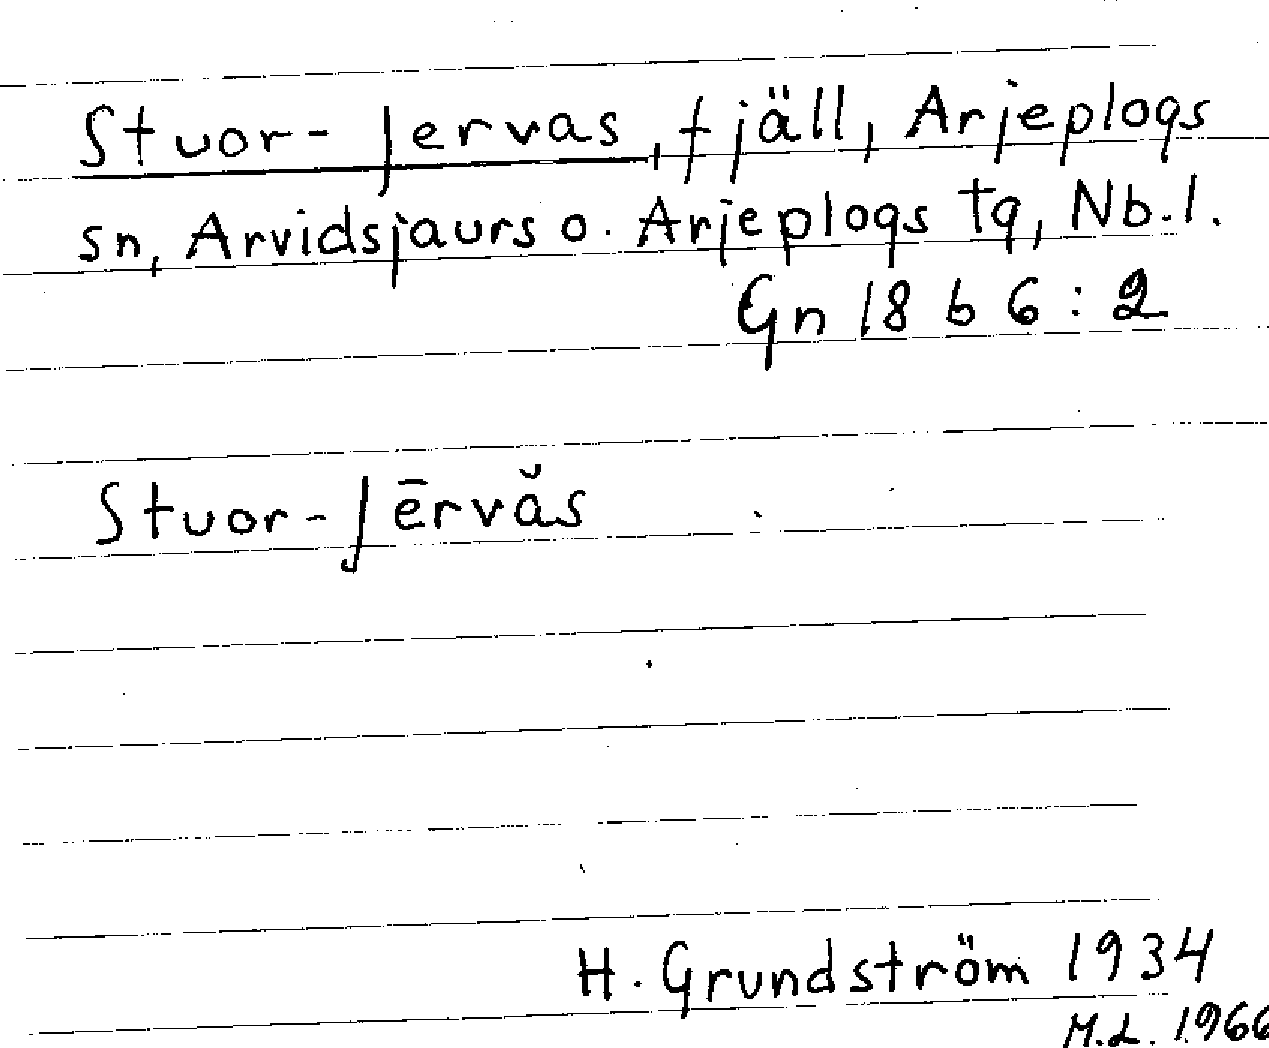 Stuor-Jervas, fjäll, Arjeplogs
sn, Arvidsjaurs o. Arjeplogs tg, Nb.l.
Gn 18 b 6 : 2
Stuor-Jērvăs
H. Grundström 1934
M.L. 1966